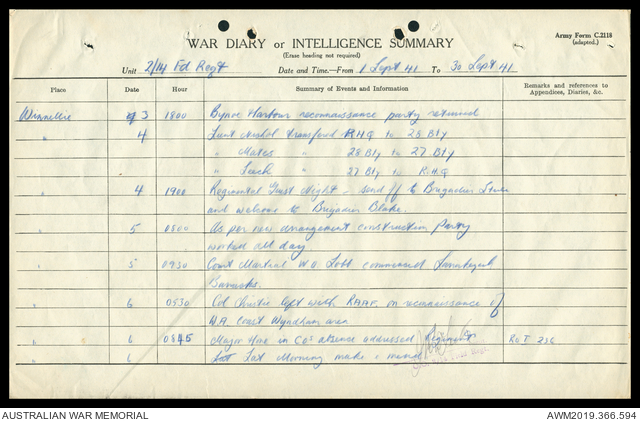 Army Form C.2118
(adapted.)
WAR DIARY or INTELLIGENCE SUMMARY
(Erase heading not required)
Unit 2/14 Fd Regt Date and Time.—From 1 Sept 41 To 30 Sept 41
Place Date Hour Summary of Events and Information Remarks and references to Appendices, Diaries, &c.
Winnellie 3 1800 Bynoe Harbour reconnaissance party returned
" 4 Lieut Nichol transferred R.H.Q to 28 Bty
" " 28 Bty to 27 Bty
" " Leach 27 Bty to R.H.Q
" 4 1900 Regimental Guest Night - send off to Brigadier
and welcome to Brigadier Blake.
" 5 0800 As per new arrangement construction party
worked all day
" 5 0930 Court Martial W.O. Lobb commenced Larrakeyah
Barracks.
" 6 0530 Col Christie left with RAAF on reconnaissance of
W.A. Coast Wyndham area
" 6 0845 Major Hone in COs absence addressed Regiment R.O.I 236
" 6 Morning make & mend
AUSTRALIAN WAR MEMORIAL AWM2019.366.594